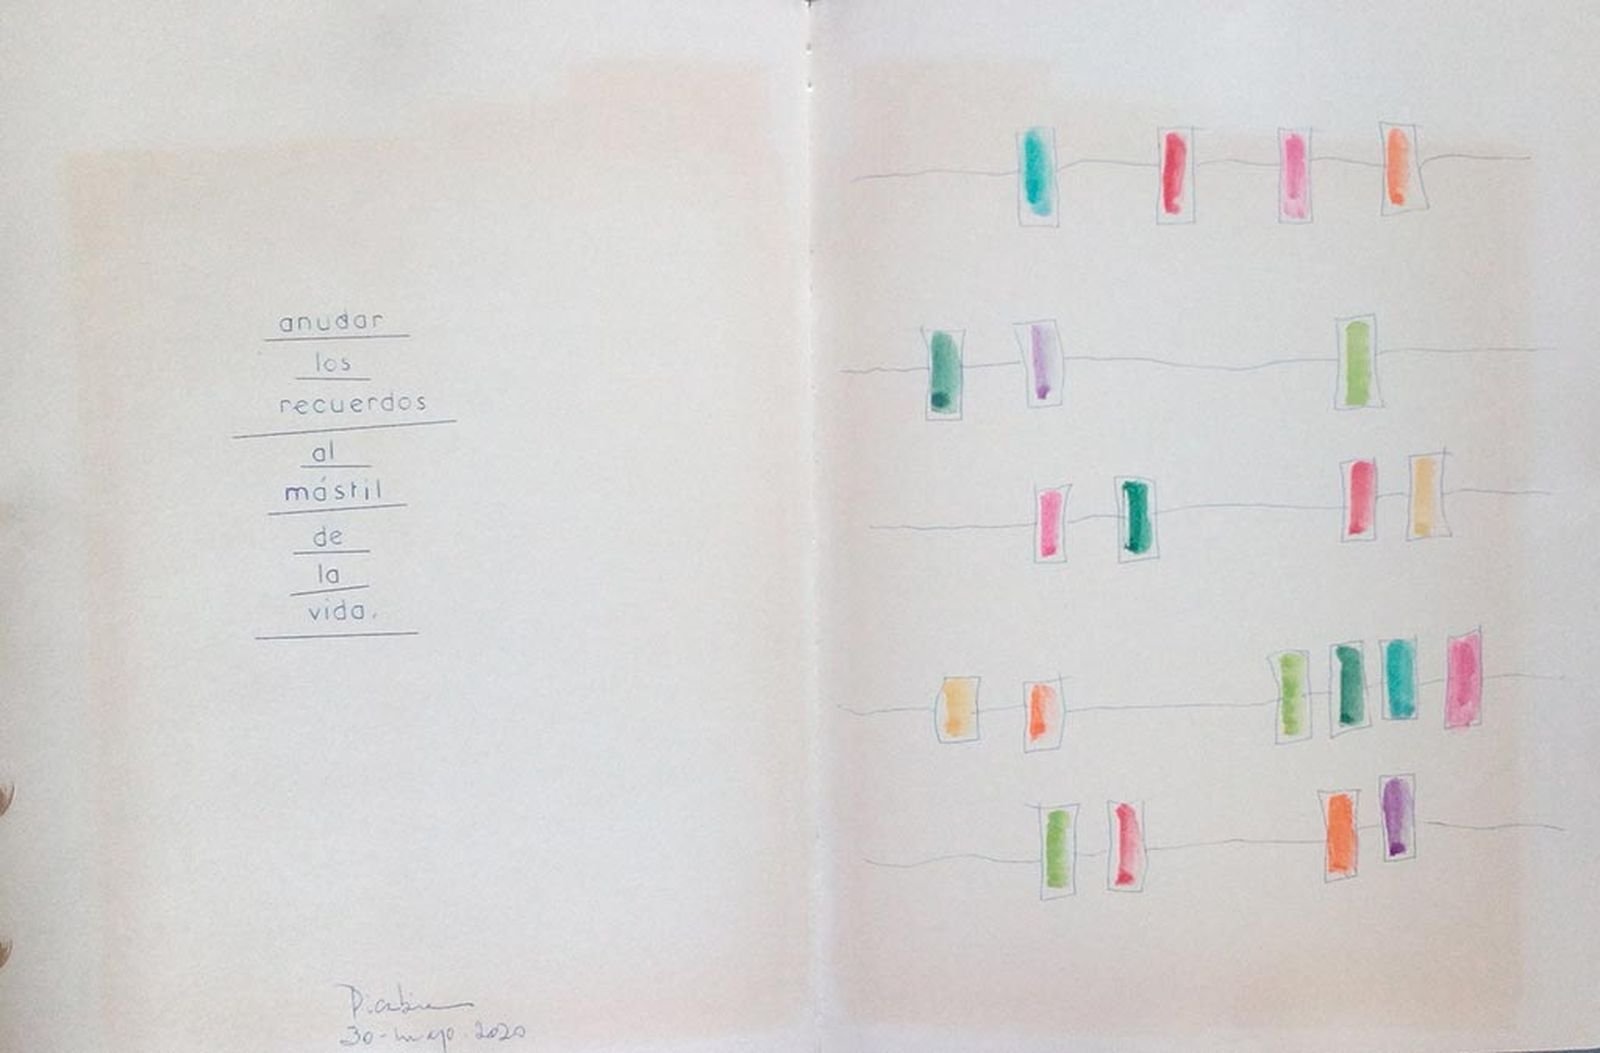 anudar
los
recuerdos
al
mástil
de
la
vida.
30-mayo-2020